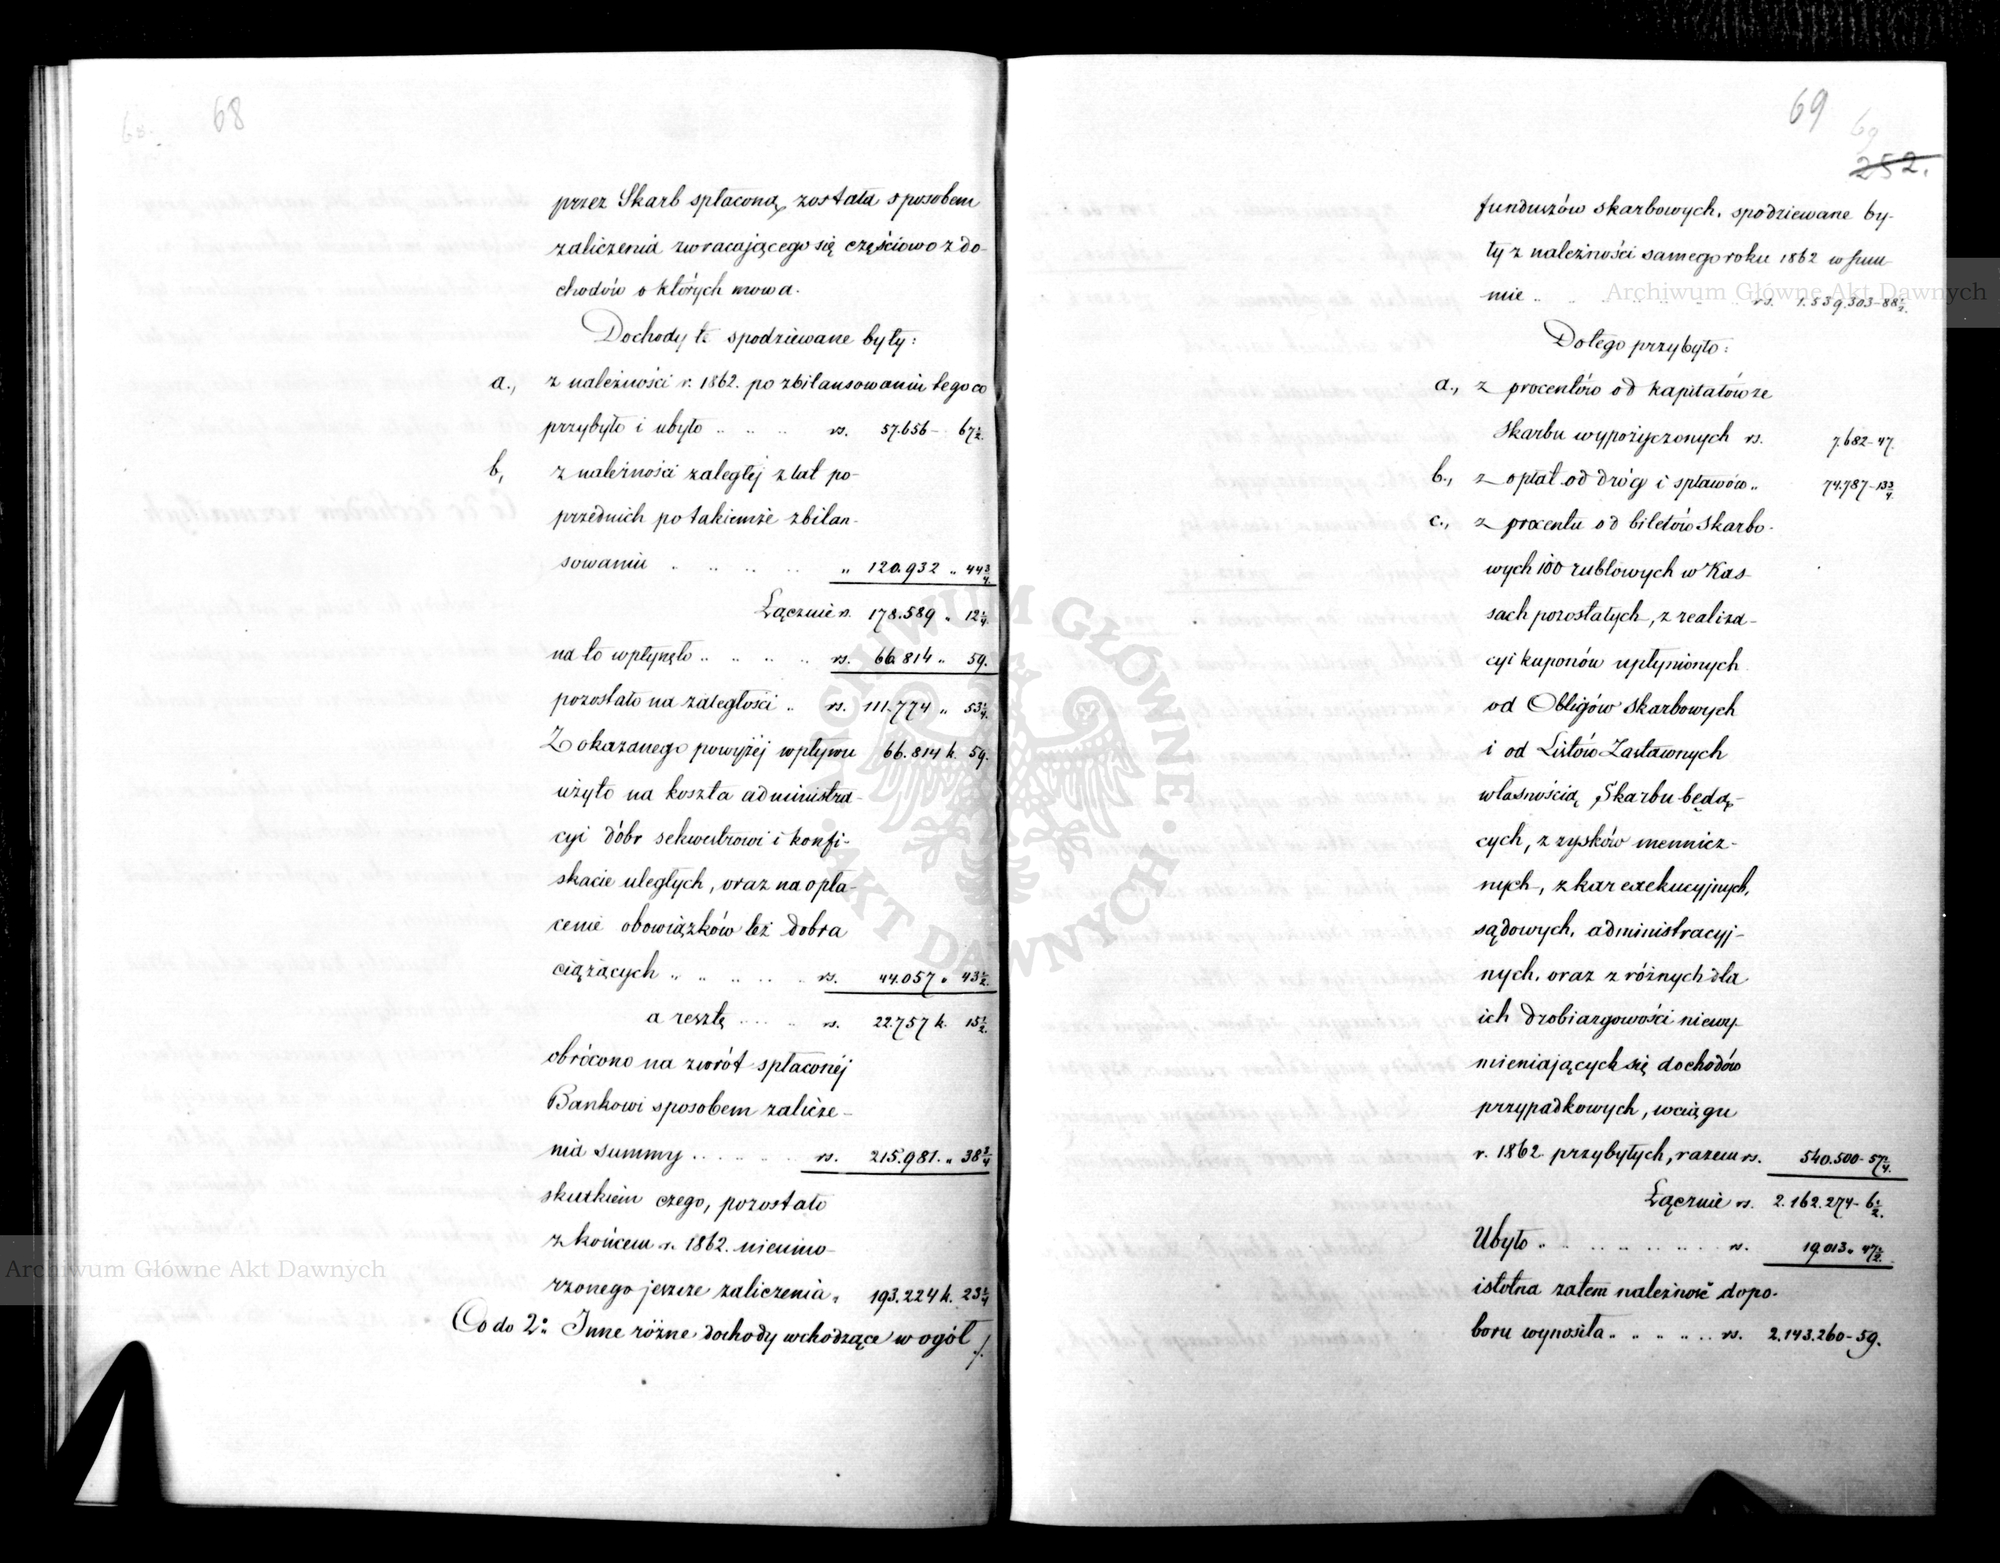 68
przez Skarb spłaconą, została sposobem
zaliczenia zwracającego się częściowo z do-
chodów o których mowa.
Dochody te spodziewane były:
a., z należności r. 1862. po zbilansowaniu tego co
przybyło i ubyło .. .. .. rs. 57.656 - 67½.
b, z należności zaległej z lat po-
przednich po takiemże zbilan-
sowaniu .. .. .. .. " 120.932 " 44¾.
Łącznie r. 178.589 " 12¼.
na to wpłynęło .. .. .. rs. 66.814 " 59.
pozostało na zaległości .. rs. 111.774 " 53¼.
Z okazanego powyżej wpływu 66.814 k. 59.
użyto na koszta administra-
cyi dóbr sekwestrowi i konfi-
skacie uległych, oraz na opła-
cenie obowiązków też dobra
ciążących .. .. .. .. rs. 44.057 " 43½.
a resztę .. .. rs. 22.757 k. 15½.
obrócono na zwrót spłaconéj
Bankowi sposobem zalicze-
nia summy .. .. .. rs. 215.981. " 38¾
skutkiem czego, pozostało
z końcem r. 1862. nieumo-
rzonego jeszcze zaliczenia " 193.224 k. 23¼
Co do 2o: Inne różne dochody wchodzące w ogół ./.
69
69
252.
funduszów skarbowych, spodziewane by-
ły z należności samego roku 1862 w sum-
mie .. .. .. .. rs. 1.539.303-88½.
Do tego przybyło:
a., z procentów od kapitałów ze
Skarbu wypożyczonych rs. 7.682-47.
b., z opłat od dróg i spławów .. 74.787-13¾.
c., z procentu od biletów Skarbo-
wych 100 rublowych w Kas-
sach pozostałych, z realiza-
cyi kuponów upłynionych
od Obligów Skarbowych
i od Listów Zastawnych
własnością Skarbu będą-
cych, z zysków mennicz-
nych, z kar exekucyjnych,
sądowych, administracyj-
nych, oraz z różnych dla
ich drobiazgowości niewy-
mieniających się dochodów
przypadkowych, w ciągu
r. 1862 przybyłych, razem rs. 540.500-57¼.
Łącznie rs. 2.162.274-6½.
Ubyło .. .. .. .. .. rs. 19.013 " 47½.
istotna zatem należność do po-
boru wynosiła .. .. .. rs. 2.143.260-59.
Archiwum Główne Akt Dawnych
Archiwum Główne Akt Dawnych
ARCHIWUM GŁÓWNE · AKT DAWNYCH ·